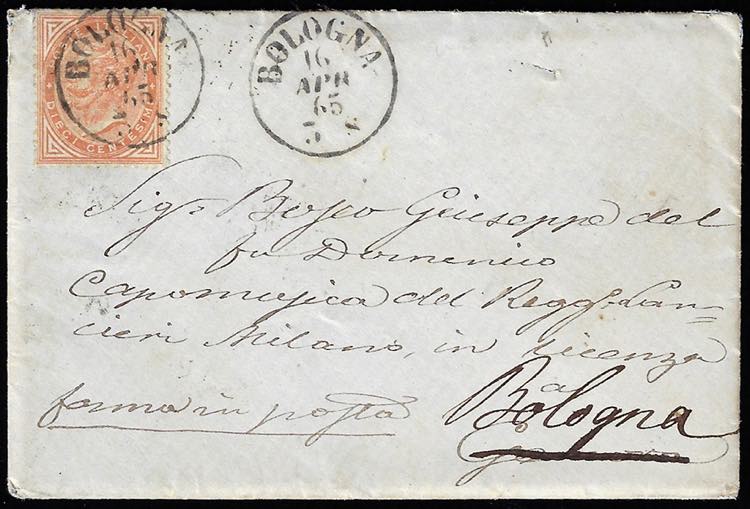 BOLOGNA
16
APR
65
3 S
DIECI CENTESIMI
BOLOGNA
16
APR
65
3 S
Sigr Bosco Giuseppe del
fu Domenico
Capomusica del Reggto Lan=
cieri Milano, in licenza
a
ferma in posta Bologna